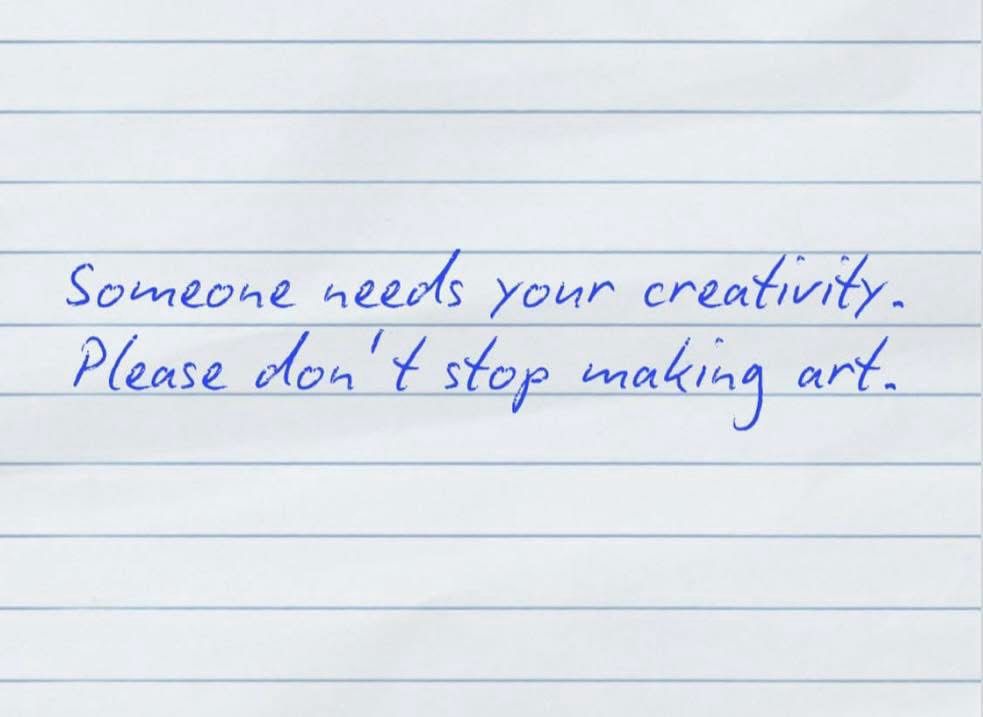 Someone needs your creativity.
Please don't stop making art.